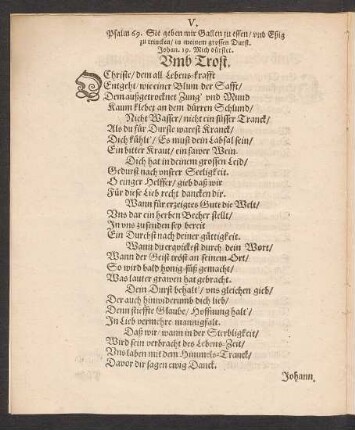 V.
Psalm 69. Sie geben mir Gallen zu essen/ vnd Essig
zu trincken/ in meinem grossen Durst.
Johan. 19. Mich dürstet.
Vmb Trost.
O Christe/ dem all Lebens-krafft
Entgeht/ wie einer Blum der Safft/
Dem außgetrocknet Zung' vnd Mund
Kaum klebet an dem dürren Schlund/
Nicht Wasser/ nicht ein süsser Tranck/
Als du für Dürste warest Kranck/
Dich kühlt'/ Es muß dein Labsal sein/
Ein bitter Kraut/ ein sawer Wein.
Dich hat in deinem grossen Leid/
Gedürst nach vnsrer Seeligkeit.
O einger Helffer/ gieb daß wir
Für diese Lieb recht dancken dir.
Wann für erzeigtes Gute die Welt/
Vns dar ein herben Becher stellt/
In vns zusenden sey bereit
Ein Durchst nach deiner güttigkeit.
Wann du erquickest durch dein Wort/
Wann der Geist tröst an seinem Ort/
So wird bald honig-süß gemacht/
Was lauter grawen hat gebracht.
Dein Durst behalt'/ vns gleichen gieb/
Der auch hinwiderumb dich lieb/
Denn stieffte Glaube/ Hoffnung halt'/
In Lieb vermehre mannigfalt.
Daß wir/ wann in der Sterbligkeit/
Wird sein verbracht des Lebens-Zeit/
Vns laben mit dem Himmels-Tranck/
Davor dir sagen ewig Danck.
Johann